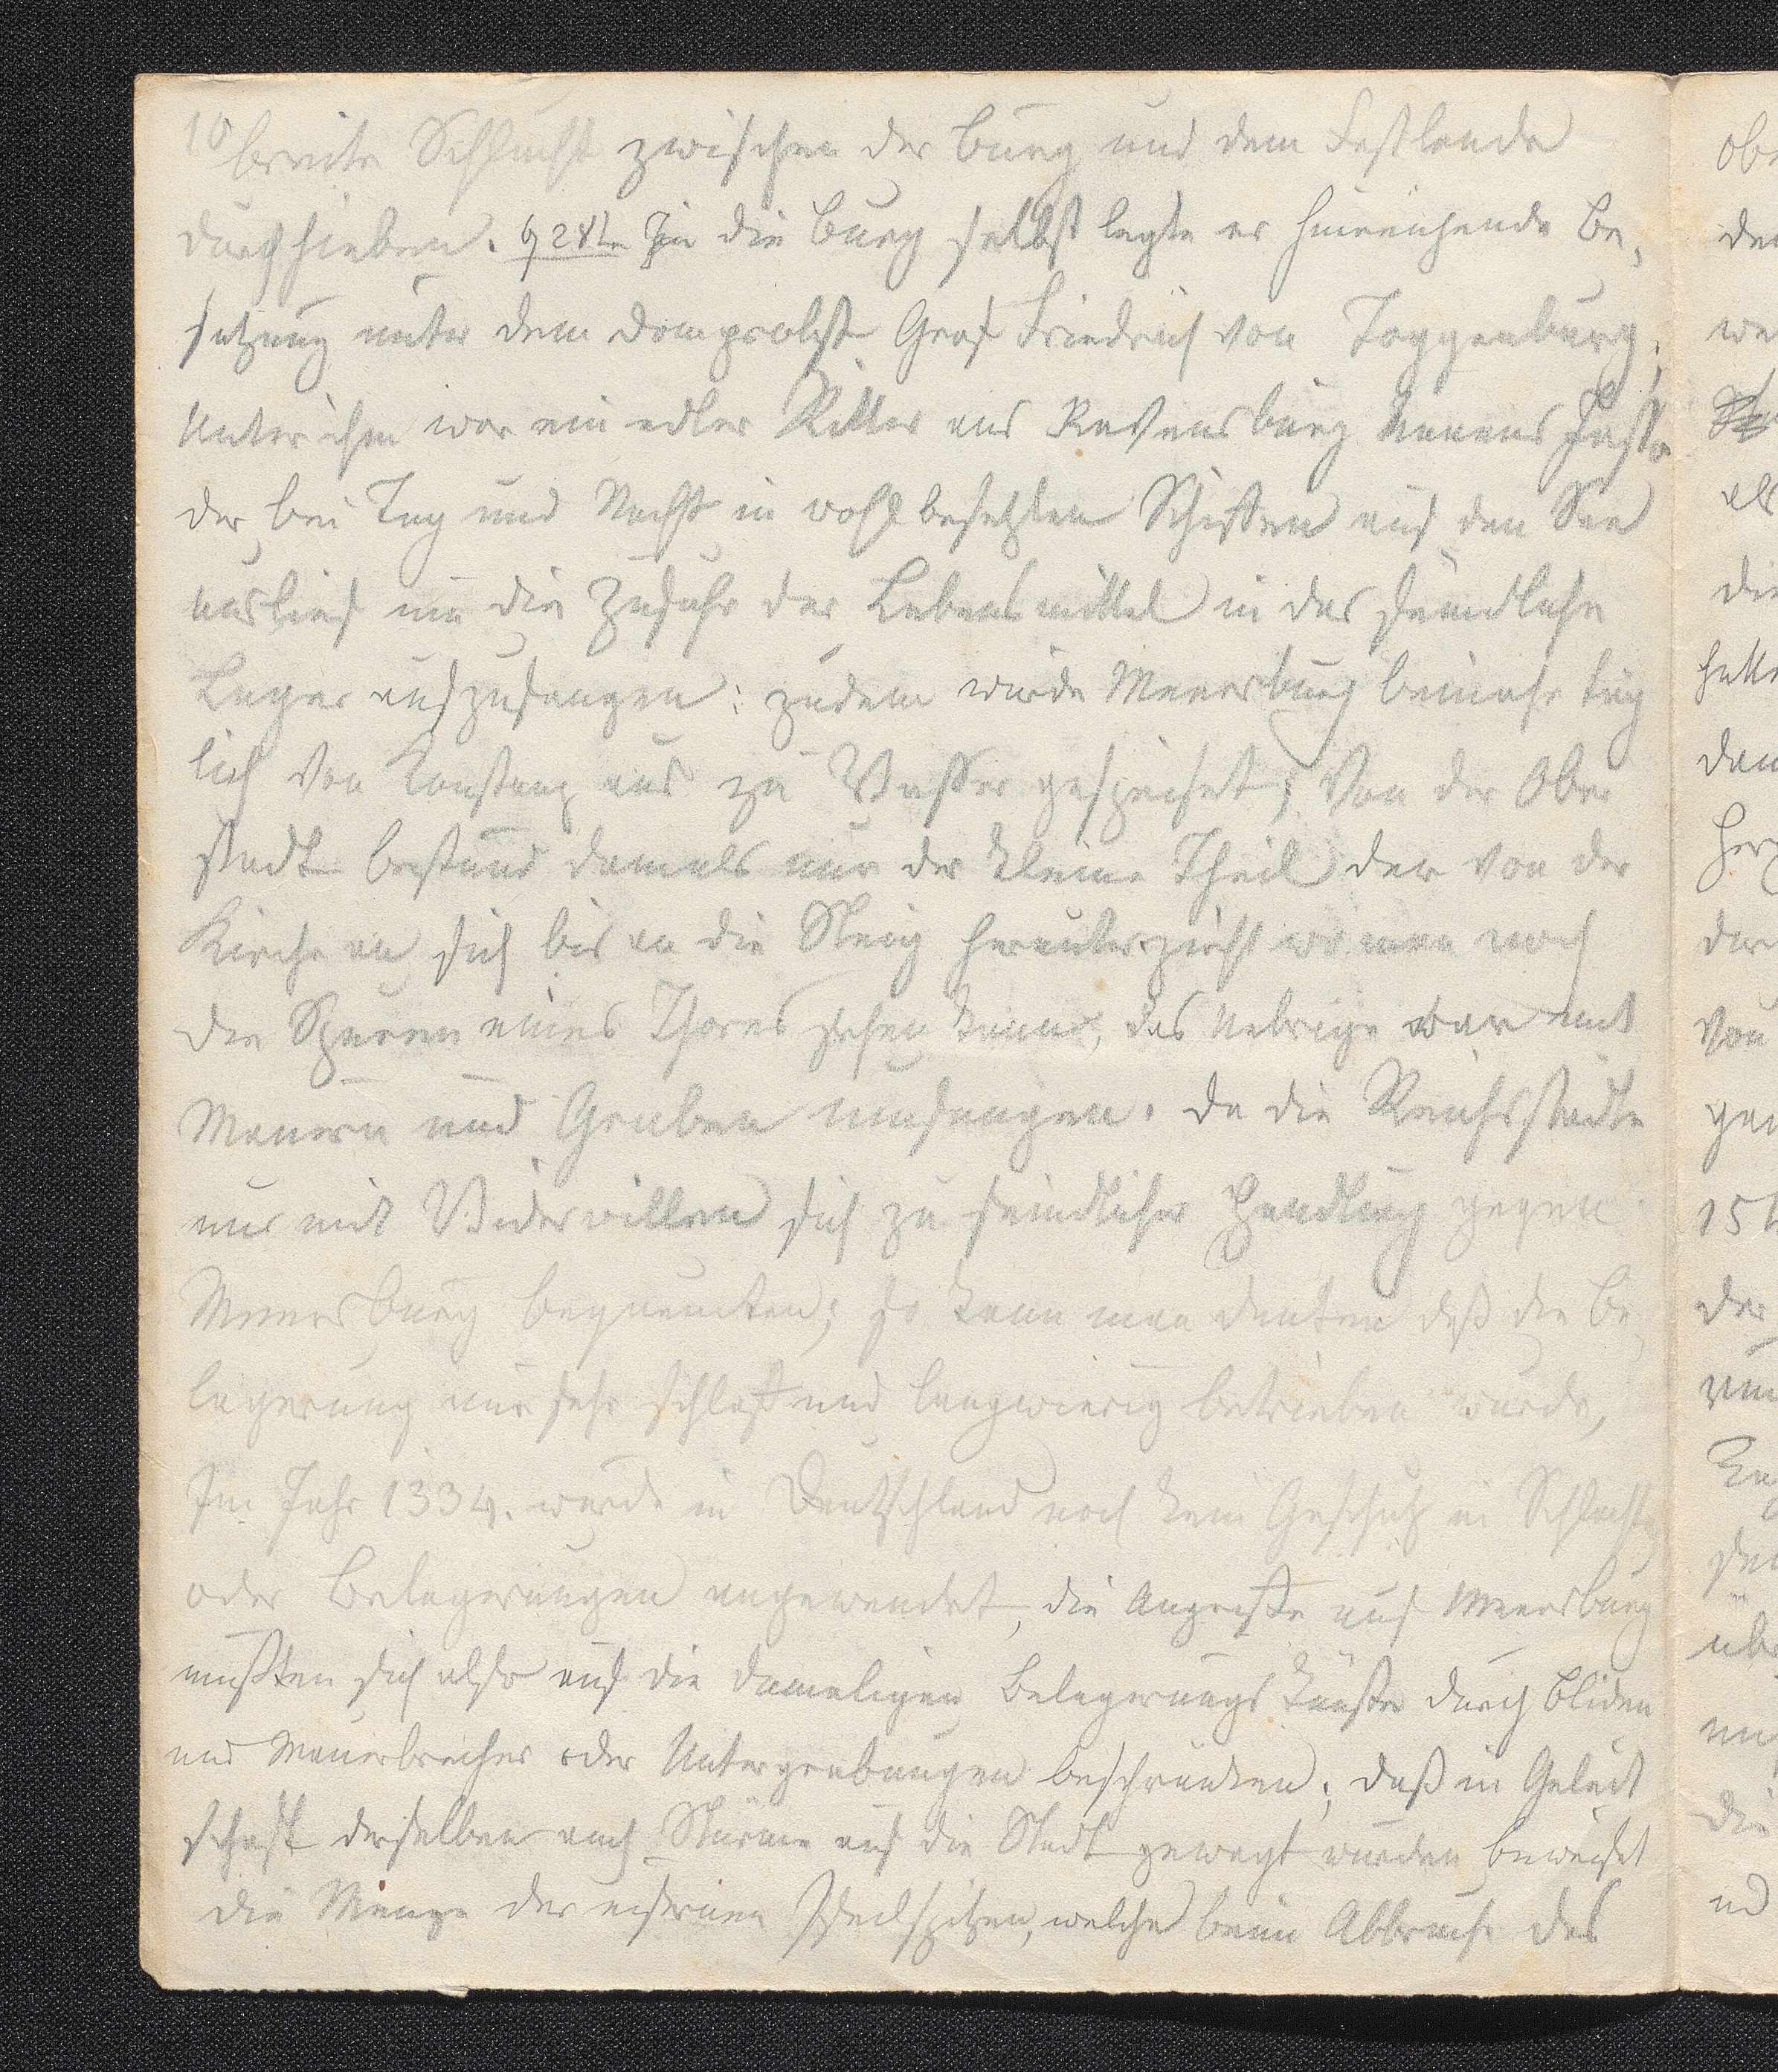 10
breite Schlucht zwischen der Burg und dem Festlande
durchhieben. § 28t. In die Burg selbst legte er hinreichende Be,
satzung unter dem Domprobst Graf Friedrich von Toggenburg;
Unter ihm war ein edler Ritter aus Ravensburg Namens
der bei Tag und Nacht in wohl besetzten Schiffen auf den See
auslief um die Zufuhr der Lebensmittel in das feindliche
Lager aufzufangen: zudem wurde Meersburg beinahe täg
lich von Konstanz aus zu Wasser gespeiset; Von der Ober
stadt bestund damals nur der kleine Theil der von der
Kirche an sich bis an die Steig herunterzieht wo man noch
die Spuren eines Thores sehen kann, das Uebrige war mit
Mauern und Graben umfangen. Da die Reichsstädte
nur mit Widerwillen sich zu feindlicher Handlung gegen
Meersburg bequemten; so kann man denken daß die Be,
lagerung nur sehr schlaff und langwierig betrieben wurde,
Im Jahr 1334. wurde in Deutschland noch kein Geschütz in Schlachten
oder Belagerungen angewendet, die Angriffe auf Meersburg
mußten sich also auf die damaligen Belagerungs Künste durch Bliden
und Mauerbrecher oder Untergrabungen beschränken; daß in Geleit
schaft derselben auch Stürme auf die Stadt gewagt wurden beweiset
die Menge der eisernen Pfeilspitzen, welche beim Abbruche des